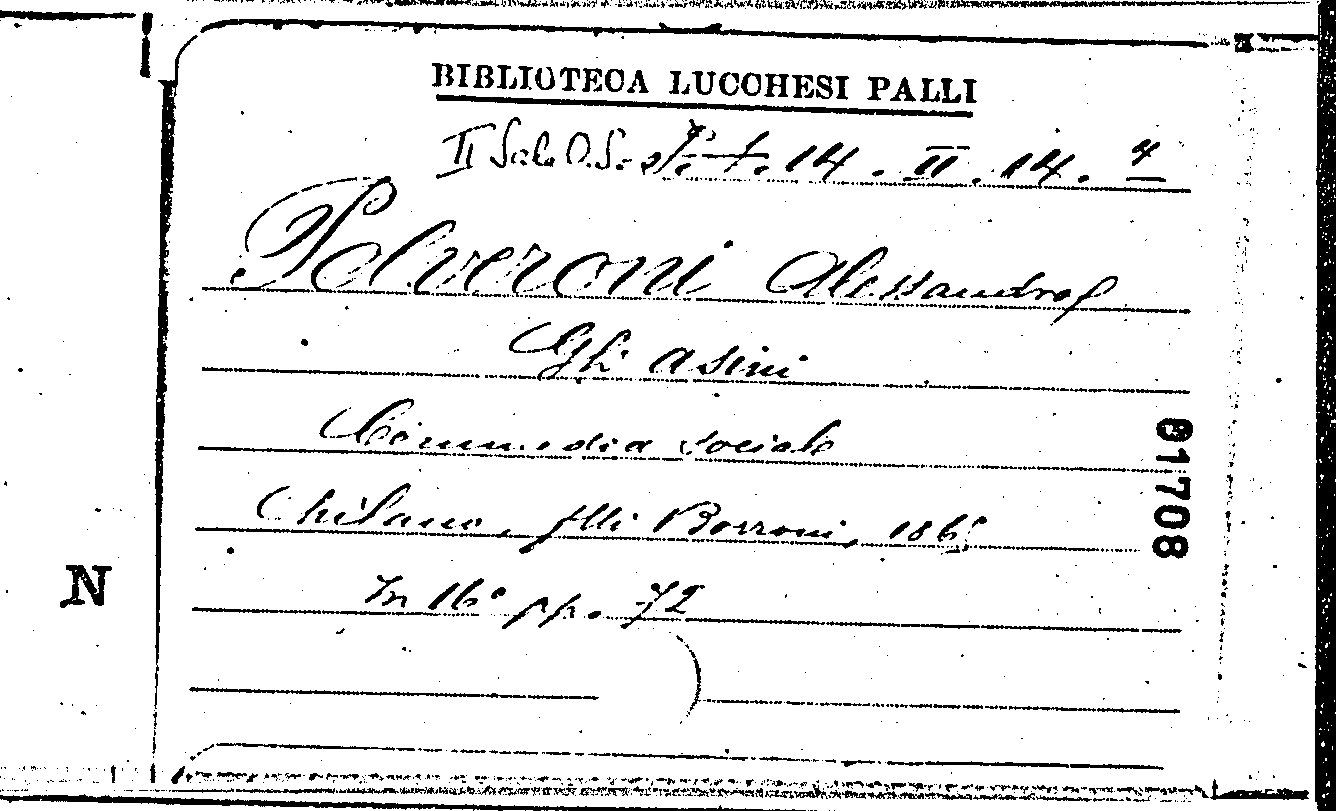 BIBLIOTECA LUCCHESI PALLI
II Sala 14. II. 14. 4
Polveroni Alessandro
Gli asini
Commedia sociale
Milano, flli Borroni, 186
In 16° pp. 72
01708
N